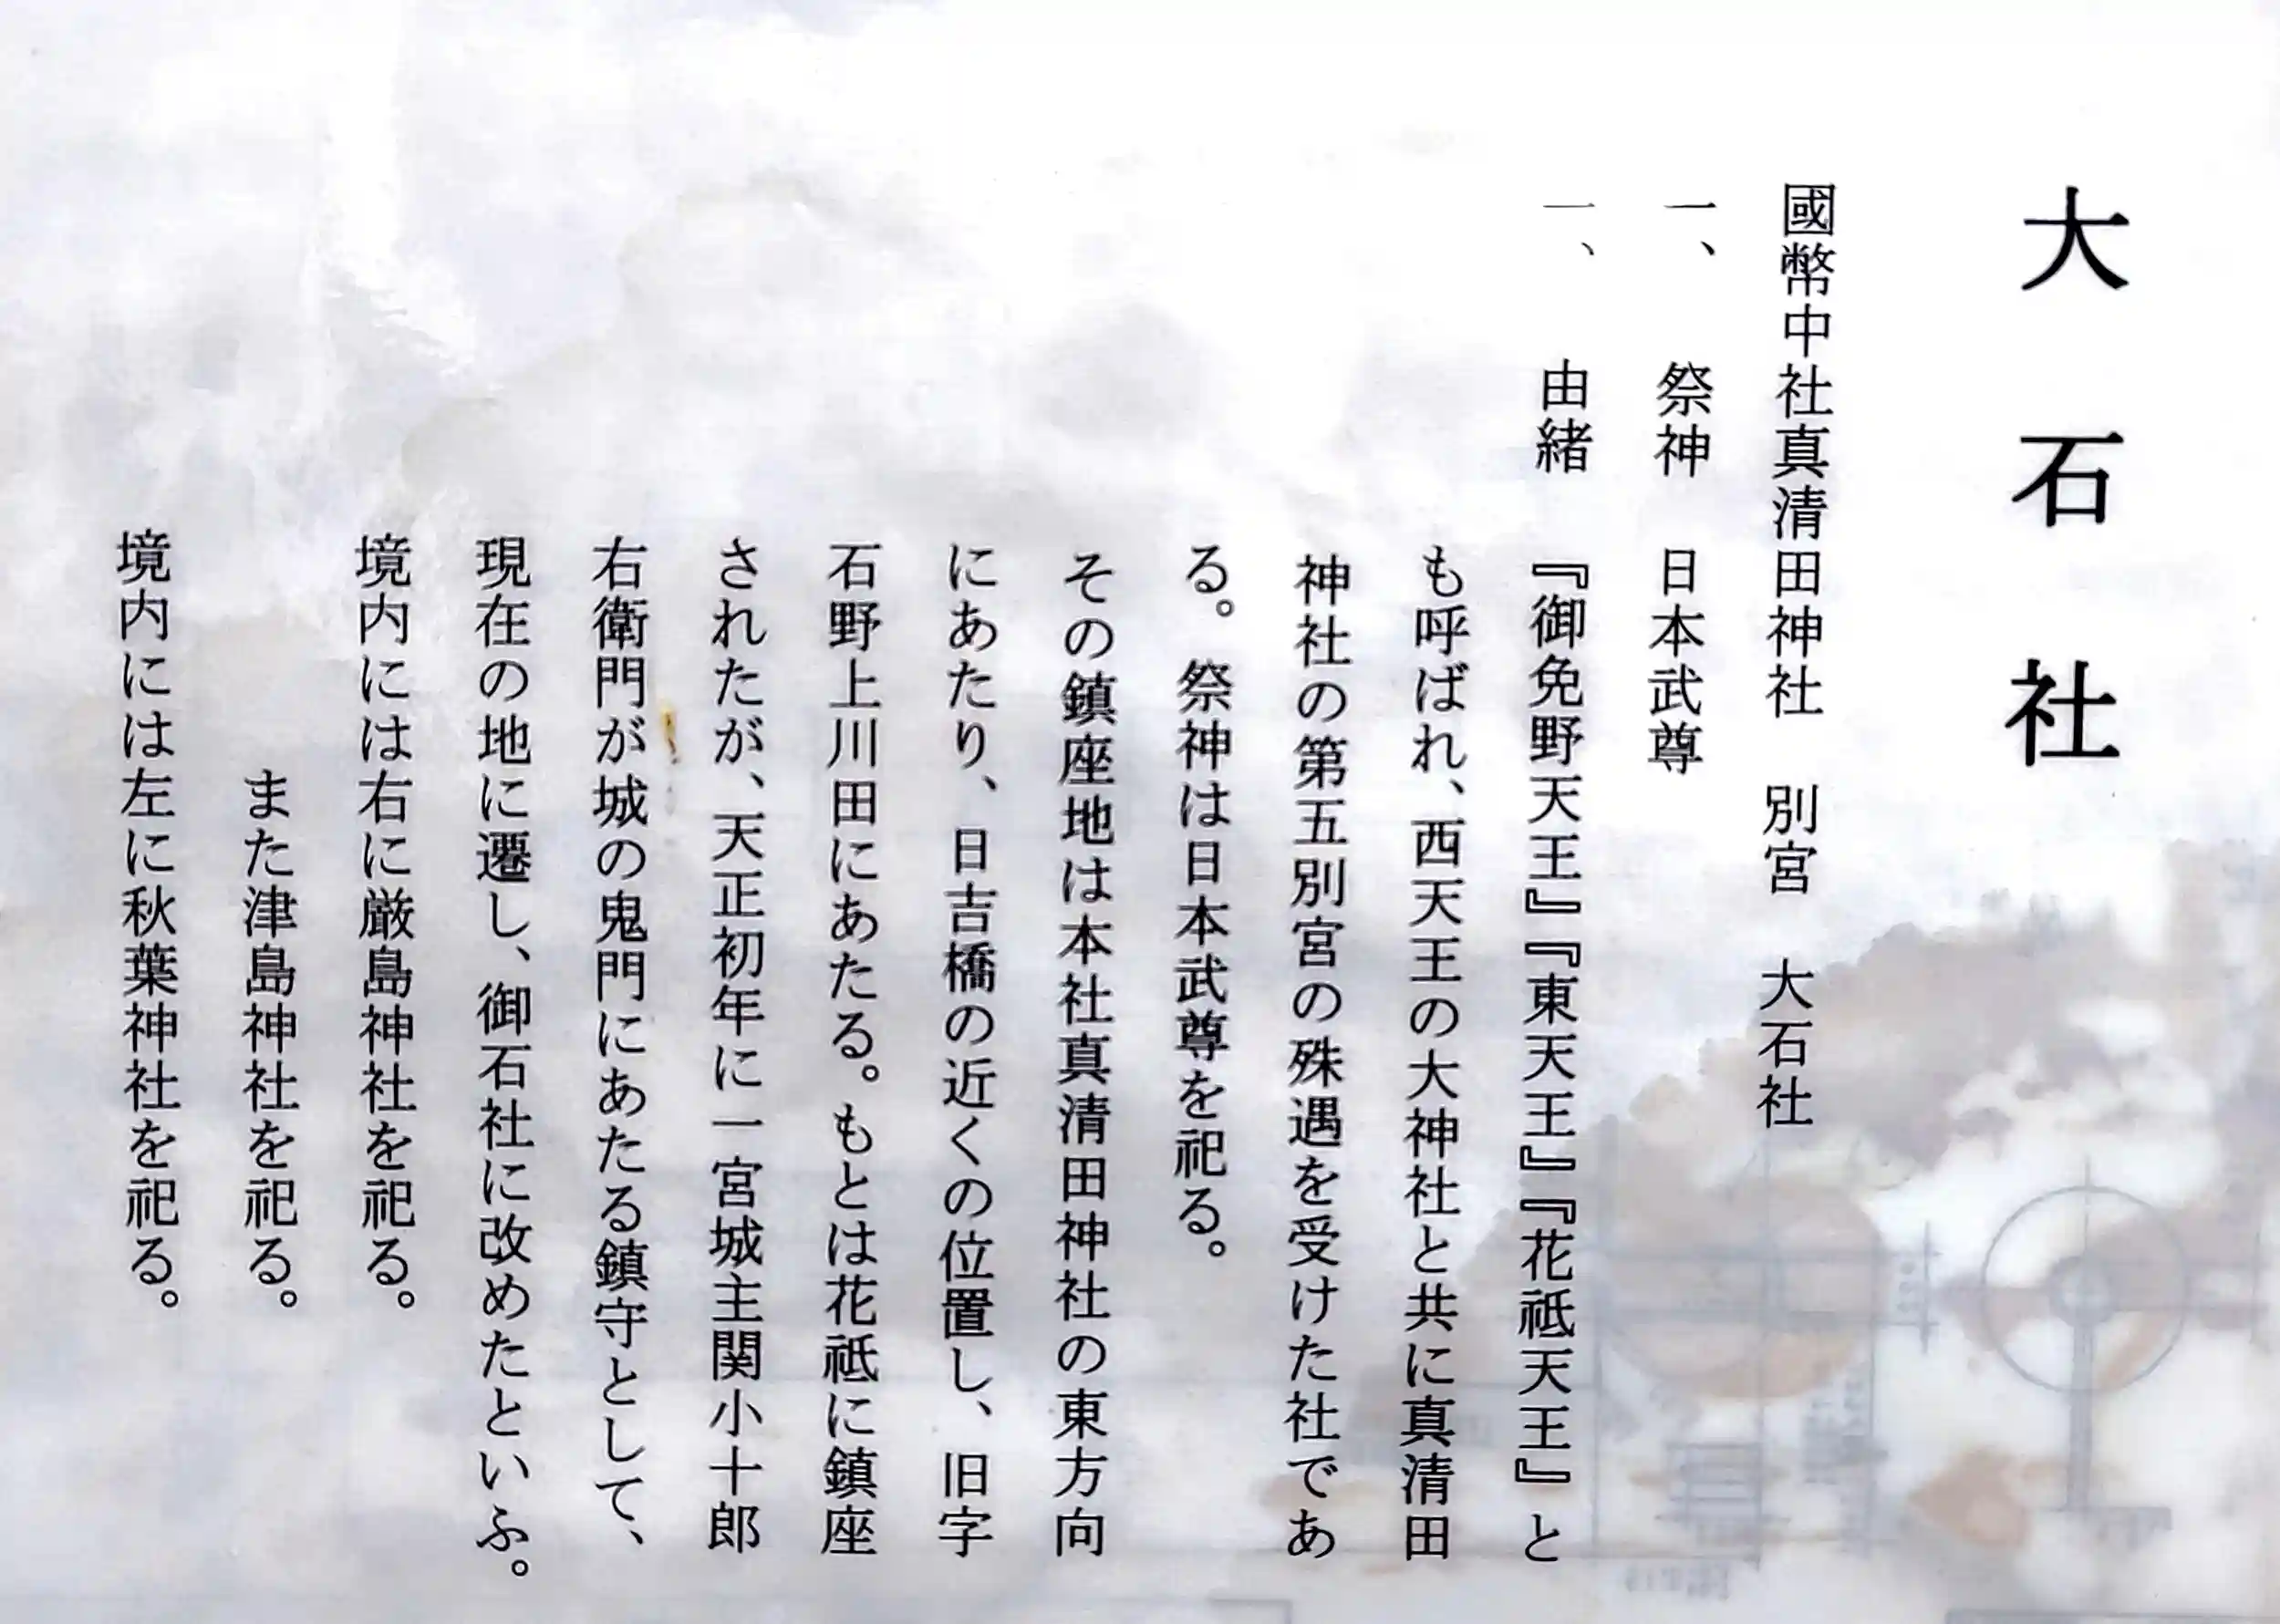 大石社
國幣中社真清田神社　別宮　大石社
一、　祭神　日本武尊
一、　由緒　『御免野天王』『東天王』『花祇天王』と
も呼ばれ、西天王の大神社と共に真清田
神社の第五別宮の殊遇を受けた社であ
る。祭神は日本武尊を祀る。
その鎮座地は本社真清田神社の東方向
にあたり、日吉橋の近くの位置し、旧字
石野上川田にあたる。もとは花祇に鎮座
されたが、天正初年に一宮城主関小十郎
右衛門が城の鬼門にあたる鎮守として、
現在の地に遷し、御石社に改めたといふ。
境内には右に厳島神社を祀る。
また津島神社を祀る。
境内には左に秋葉神社を祀る。